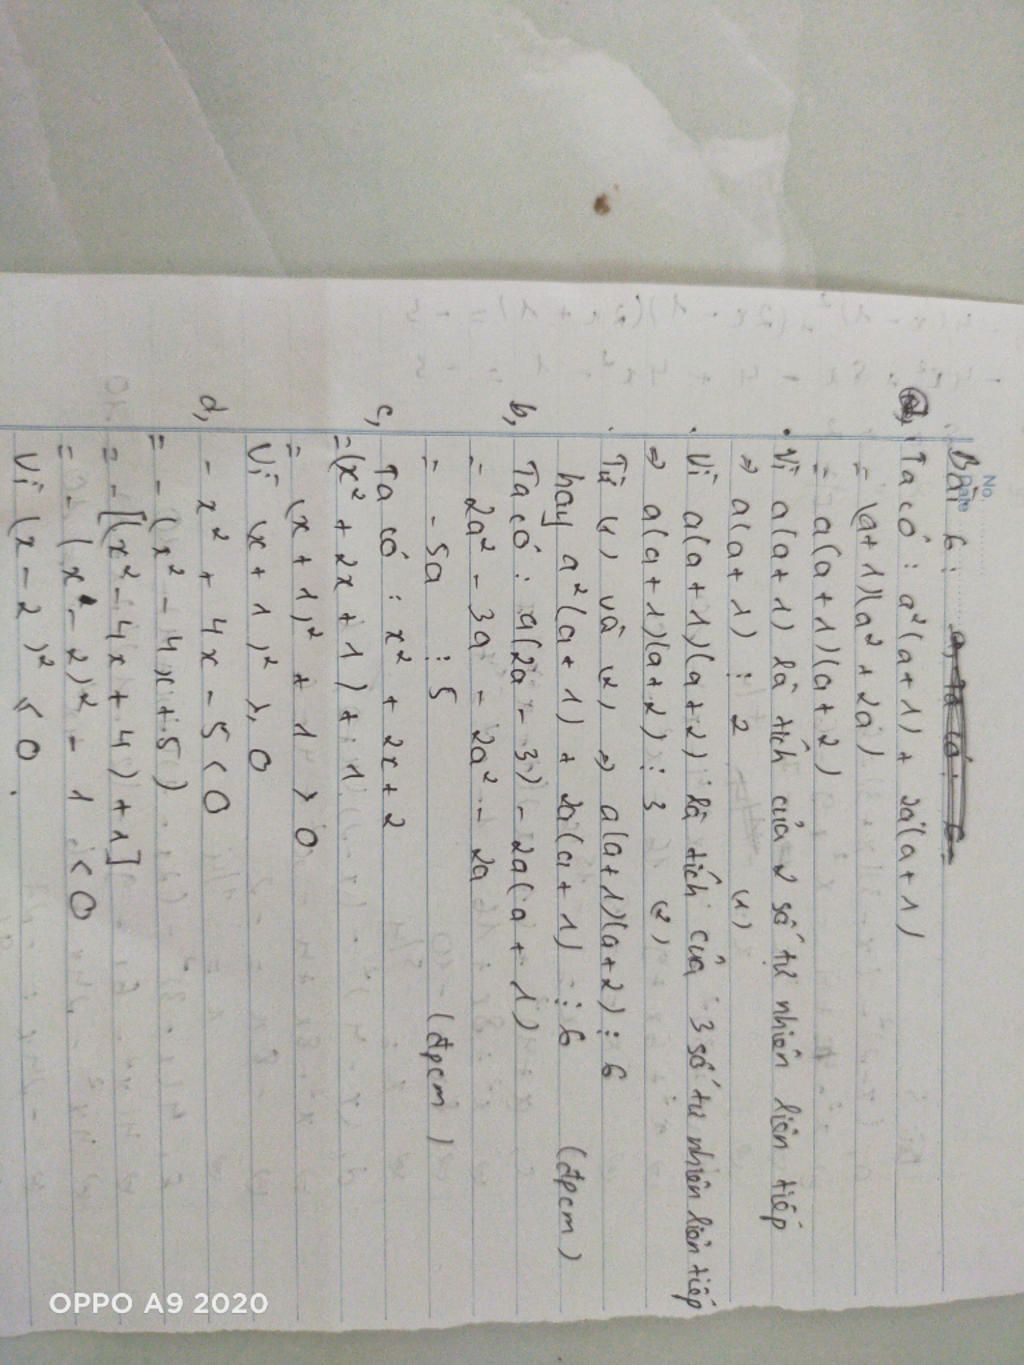 No.
Date
Bài 6:
a, Ta có : a²(a+1) + 2a(a+1)
= (a+1)(a² + 2a)
= a(a+1)(a+2)
. Vì a(a+1) là tích của 2 số tự nhiên liên tiếp
⇒ a(a+1) ⋮ 2 (1)
. Vì a(a+1)(a+2) là tích của 3 số tự nhiên liên tiếp
⇒ a(a+1)(a+2) ⋮ 3 (2)
. Từ (1) và (2) ⇒ a(a+1)(a+2) ⋮ 6
hay a²(a+1) + 2a(a+1) ⋮ 6 (đpcm)
b, Ta có : a(2a - 3) - 2a(a + 1)
= 2a² - 3a - 2a² - 2a
= - 5a ⋮ 5 (đpcm)
c, Ta có : x² + 2x + 2
= (x² + 2x + 1) + 1
= (x + 1)² + 1 > 0
Vì (x + 1)² ≥ 0
d, - x² + 4x - 5 < 0
= - (x² - 4x + 5)
= - [(x² - 4x + 4) + 1]
= - (x - 2)² - 1 < 0
Vì (x - 2)² ≤ 0
OPPO A9 2020